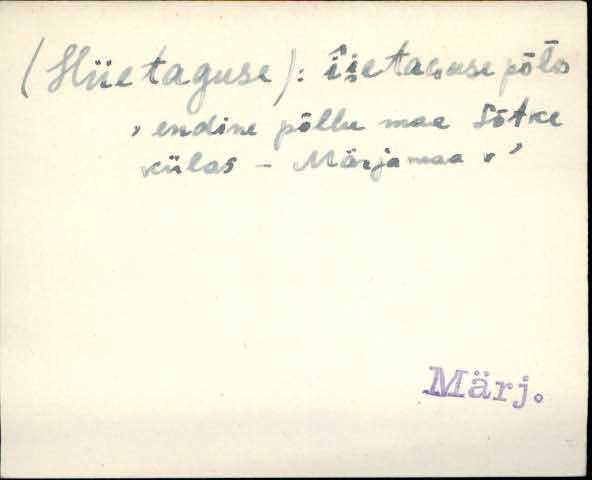 (Hiietaguse): îi̯etaguse põlɔ
, endine põllu maa Sõtke
külas – Märjamaa v'
Märj.